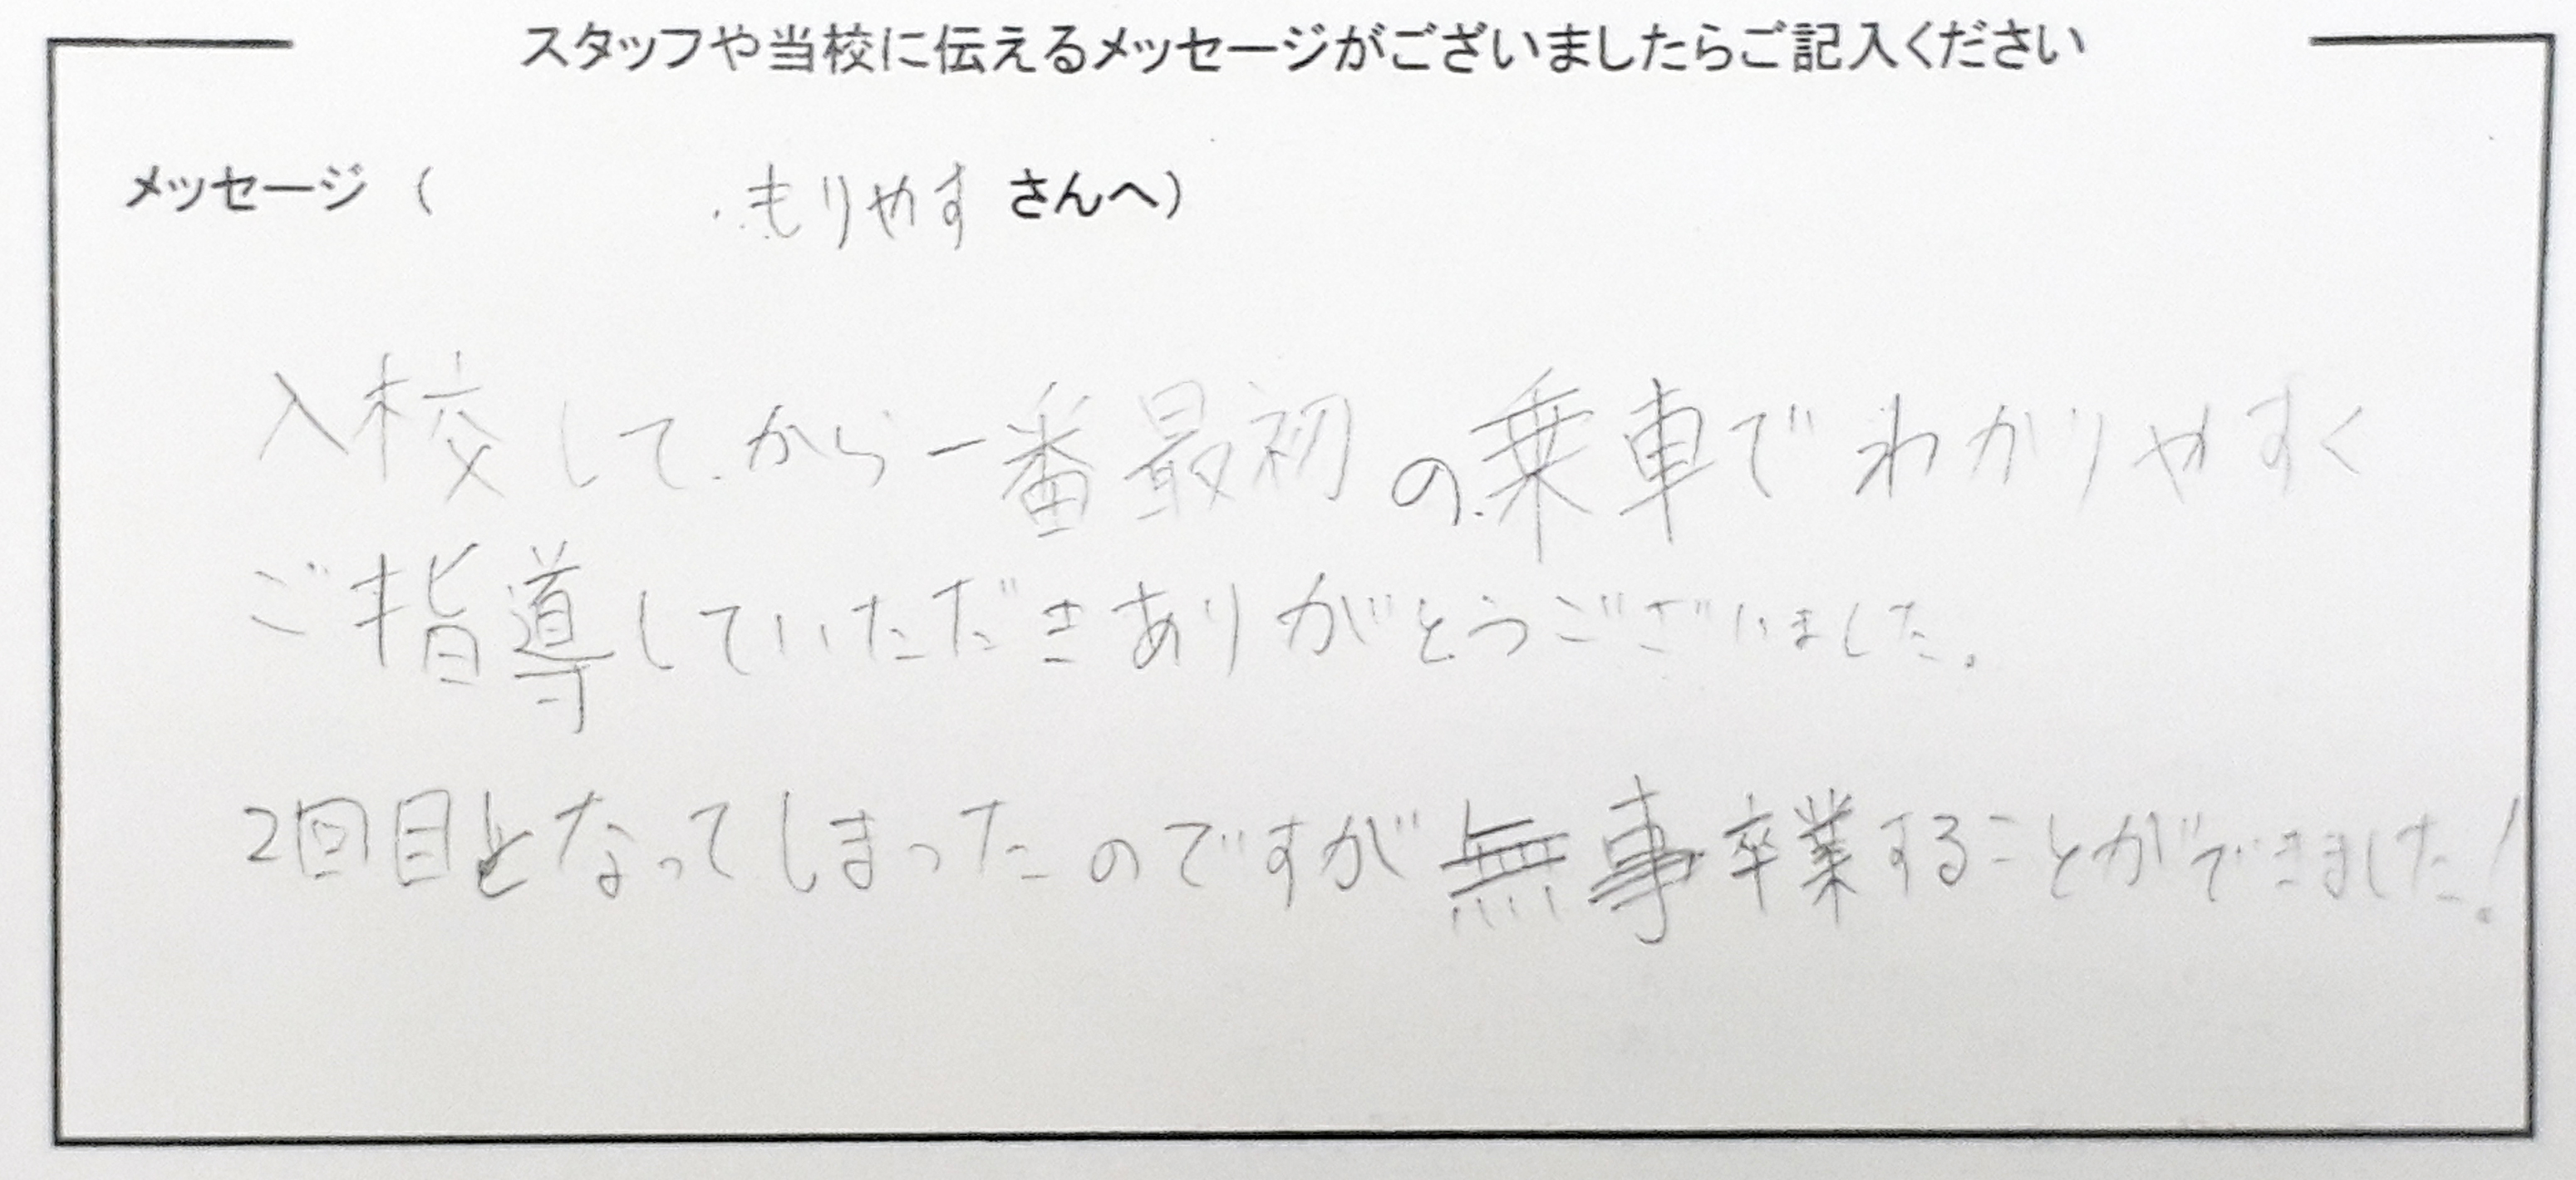 スタッフや当校に伝えるメッセージがございましたらご記入ください
メッセージ（ もりやす さんへ）
入校してから一番最初の乗車でわかりやすく
ご指導していただきありがとうございました。
2回目となってしまったのですが無事卒業することができました！